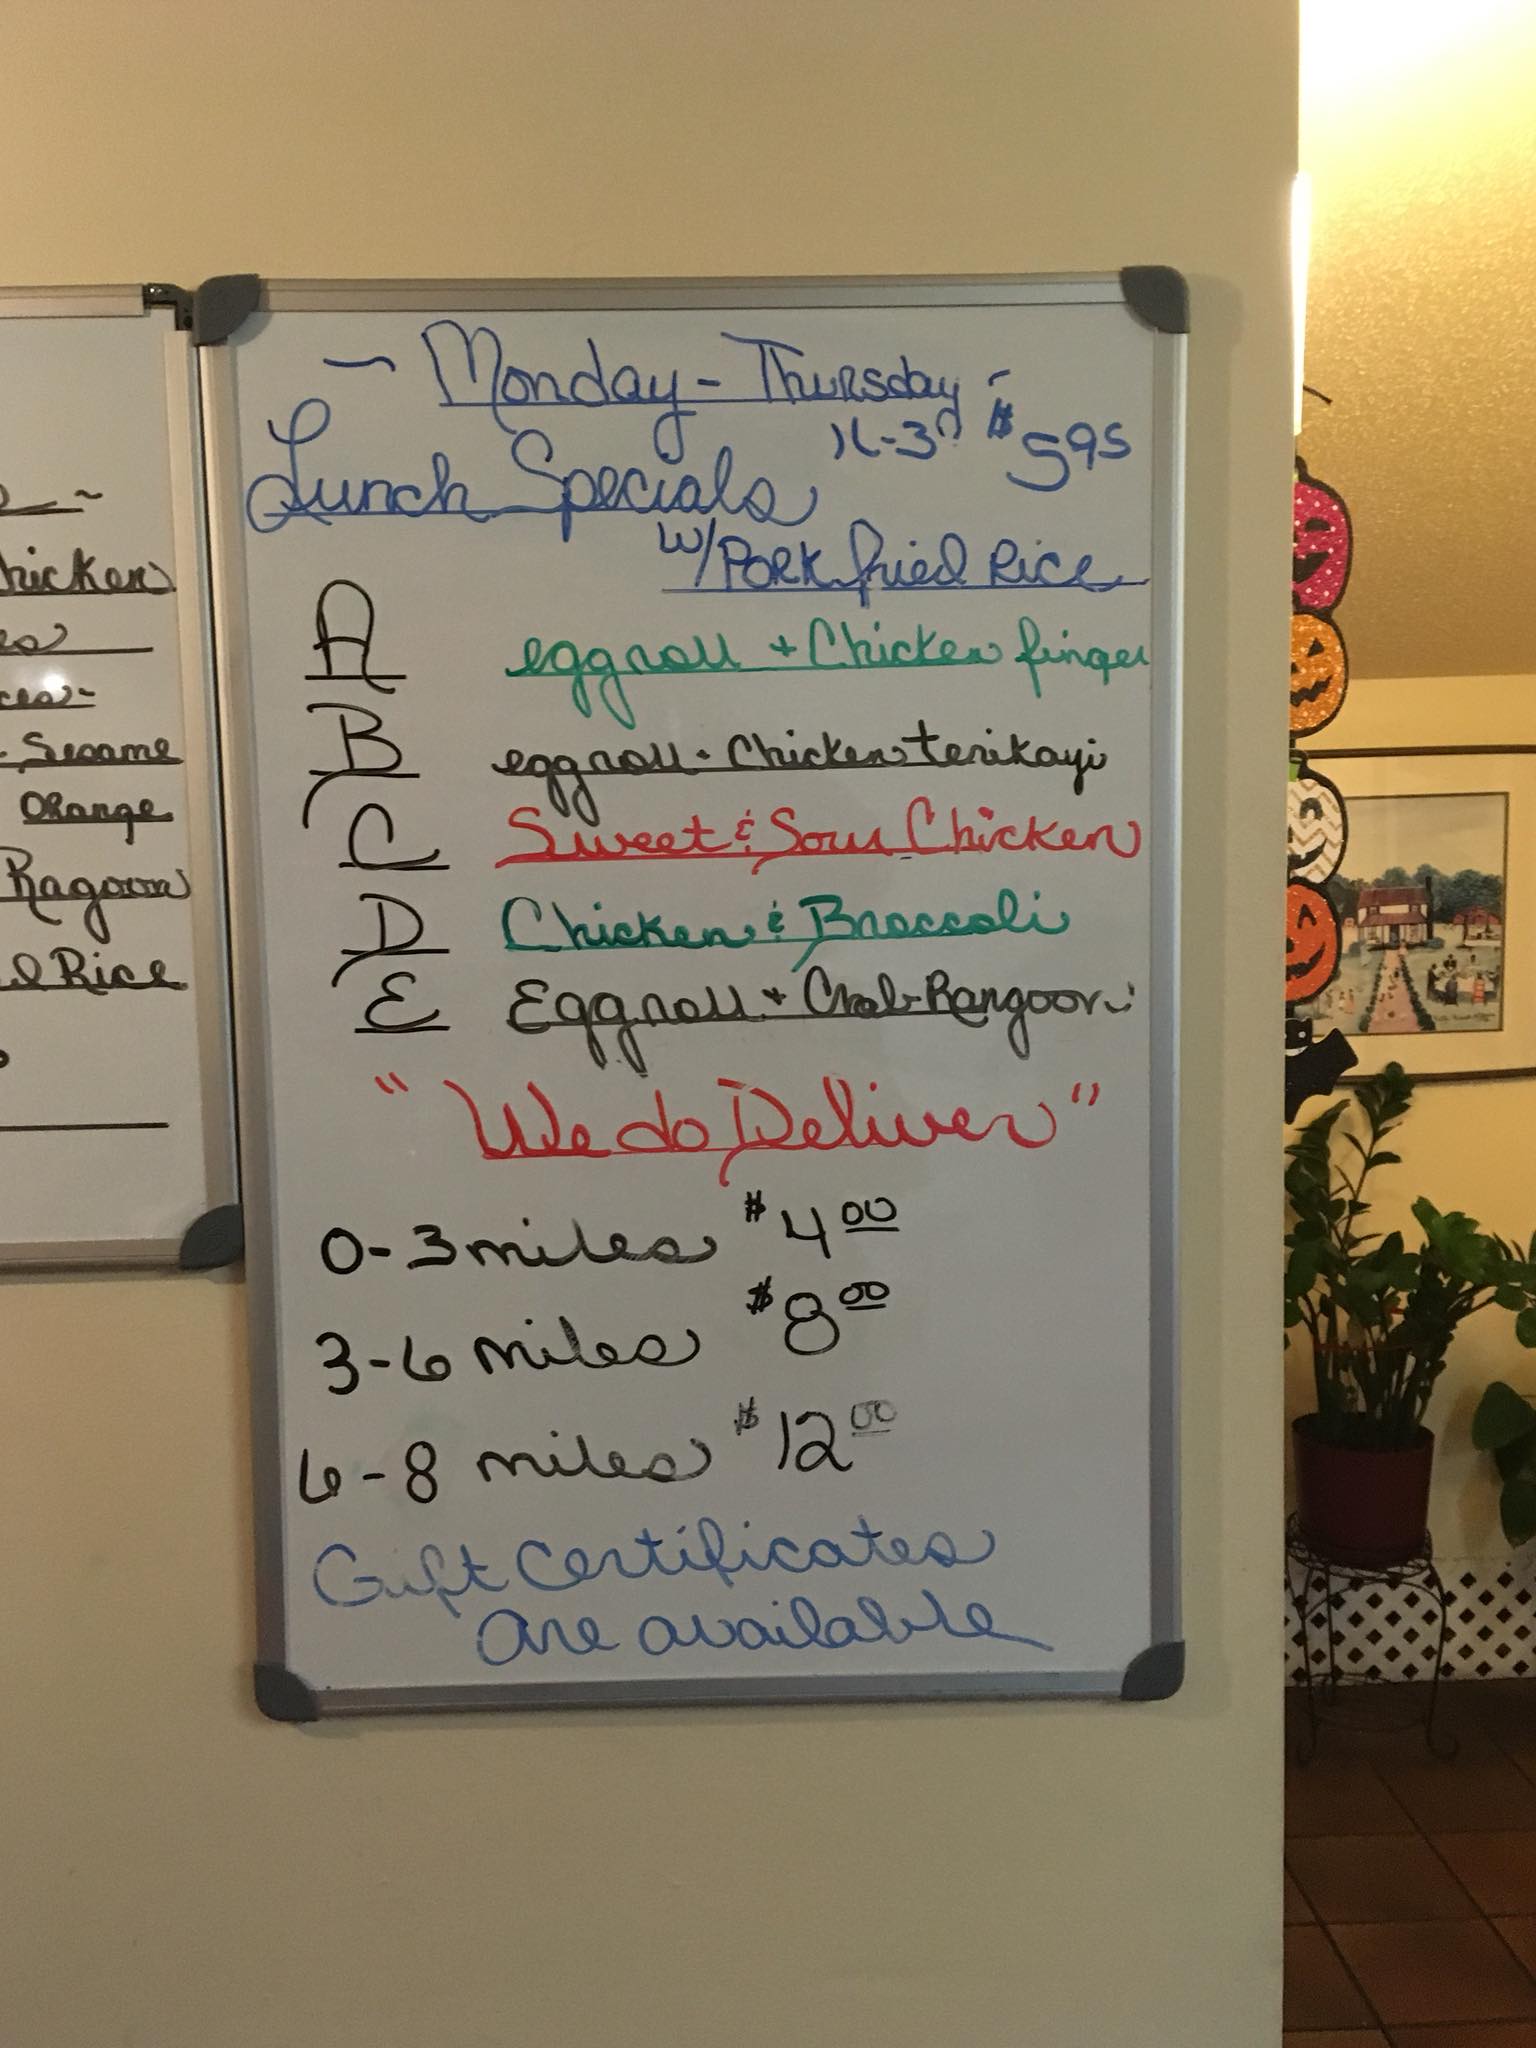 ~ Monday - Thursday ~
Lunch Specials 11-3 $5.95
w/ Pork fried Rice
A eggroll + Chicken finger
B eggroll - Chicken terikayi
C Sweet & Sour Chicken
D Chicken & Broccoli
E Eggroll + Crab Rangoon
"We do Deliver"
0-3 miles $4.00
3-6 miles $8.00
6-8 miles $12.00
Gift Certificates
are available
hicken
Sesame
Orange
Ragoon
Rice